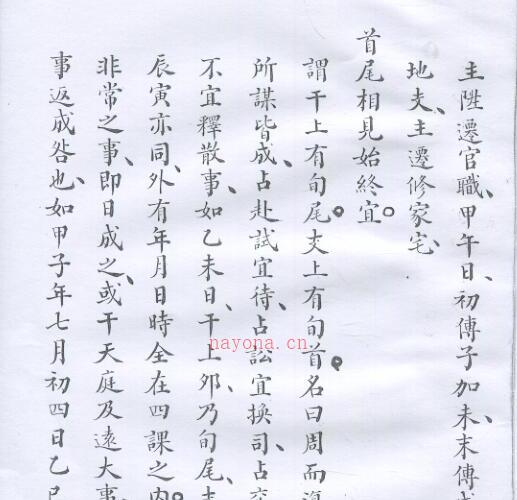 主陞遷官職、甲午日、初傳子加未、末傳
地支、主遷修家宅、
首尾相見始終宜。
謂干上有旬尾。支上有旬首。名曰周而復
所謀皆成、占赴試宜待、占訟宜換司、占交
不宜釋散事、如乙未日、干上夘、乃旬尾、支
辰寅亦同、外有年月日時全在四課之內。
非常之事、即日成之、或干天庭及遠大事
事返成咎也、如甲子年七月初四日乙巳
nayona.cn